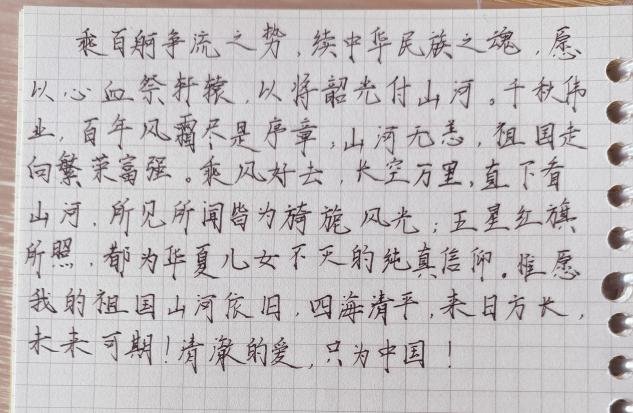 乘百舸争流之势,续中华民族之魂,愿
以心血祭轩辕,以将韶光付山河。千秋伟
业,百年风霜尽是序章;山河无恙,祖国走
向繁荣富强。乘风好去,长空万里,直下看
山河,所见所闻皆为旖旎风光;五星红旗
所照,都为华夏儿女不灭的纯真信仰。惟愿
我的祖国山河依旧,四海清平,来日方长,
未来可期!清澈的爱,只为中国!